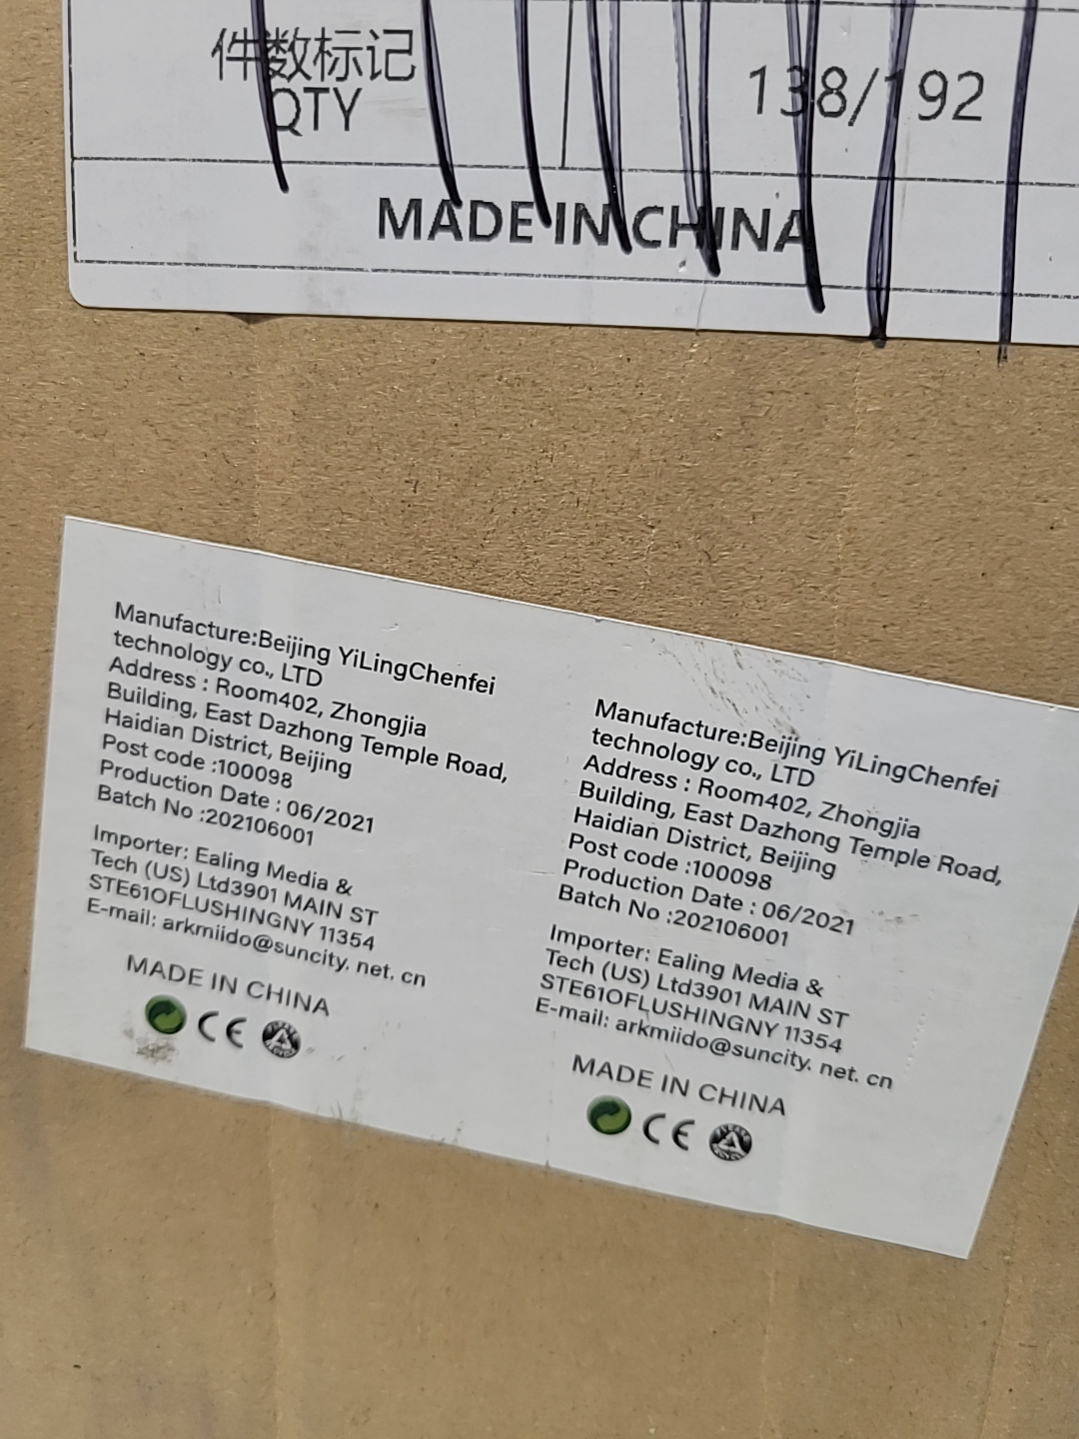 件数标记
QTY
138/192
MADE IN CHINA
Manufacture:Beijing YiLingChenfei
technology co., LTD
Address : Room402, Zhongjia
Building, East Dazhong Temple Road,
Haidian District, Beijing
Post code :100098
Production Date : 06/2021
Batch No :202106001
Importer: Ealing Media &
Tech (US) Ltd3901 MAIN ST
STE61OFLUSHINGNY 11354
E-mail: arkmiido@suncity. net. cn
MADE IN CHINA
CE
Manufacture:Beijing YiLingChenfei
technology co., LTD
Address : Room402, Zhongjia
Building, East Dazhong Temple Road,
Haidian District, Beijing
Post code :100098
Production Date : 06/2021
Batch No :202106001
Importer: Ealing Media &
Tech (US) Ltd3901 MAIN ST
STE61OFLUSHINGNY 11354
E-mail: arkmiido@suncity. net. cn
MADE IN CHINA
CE